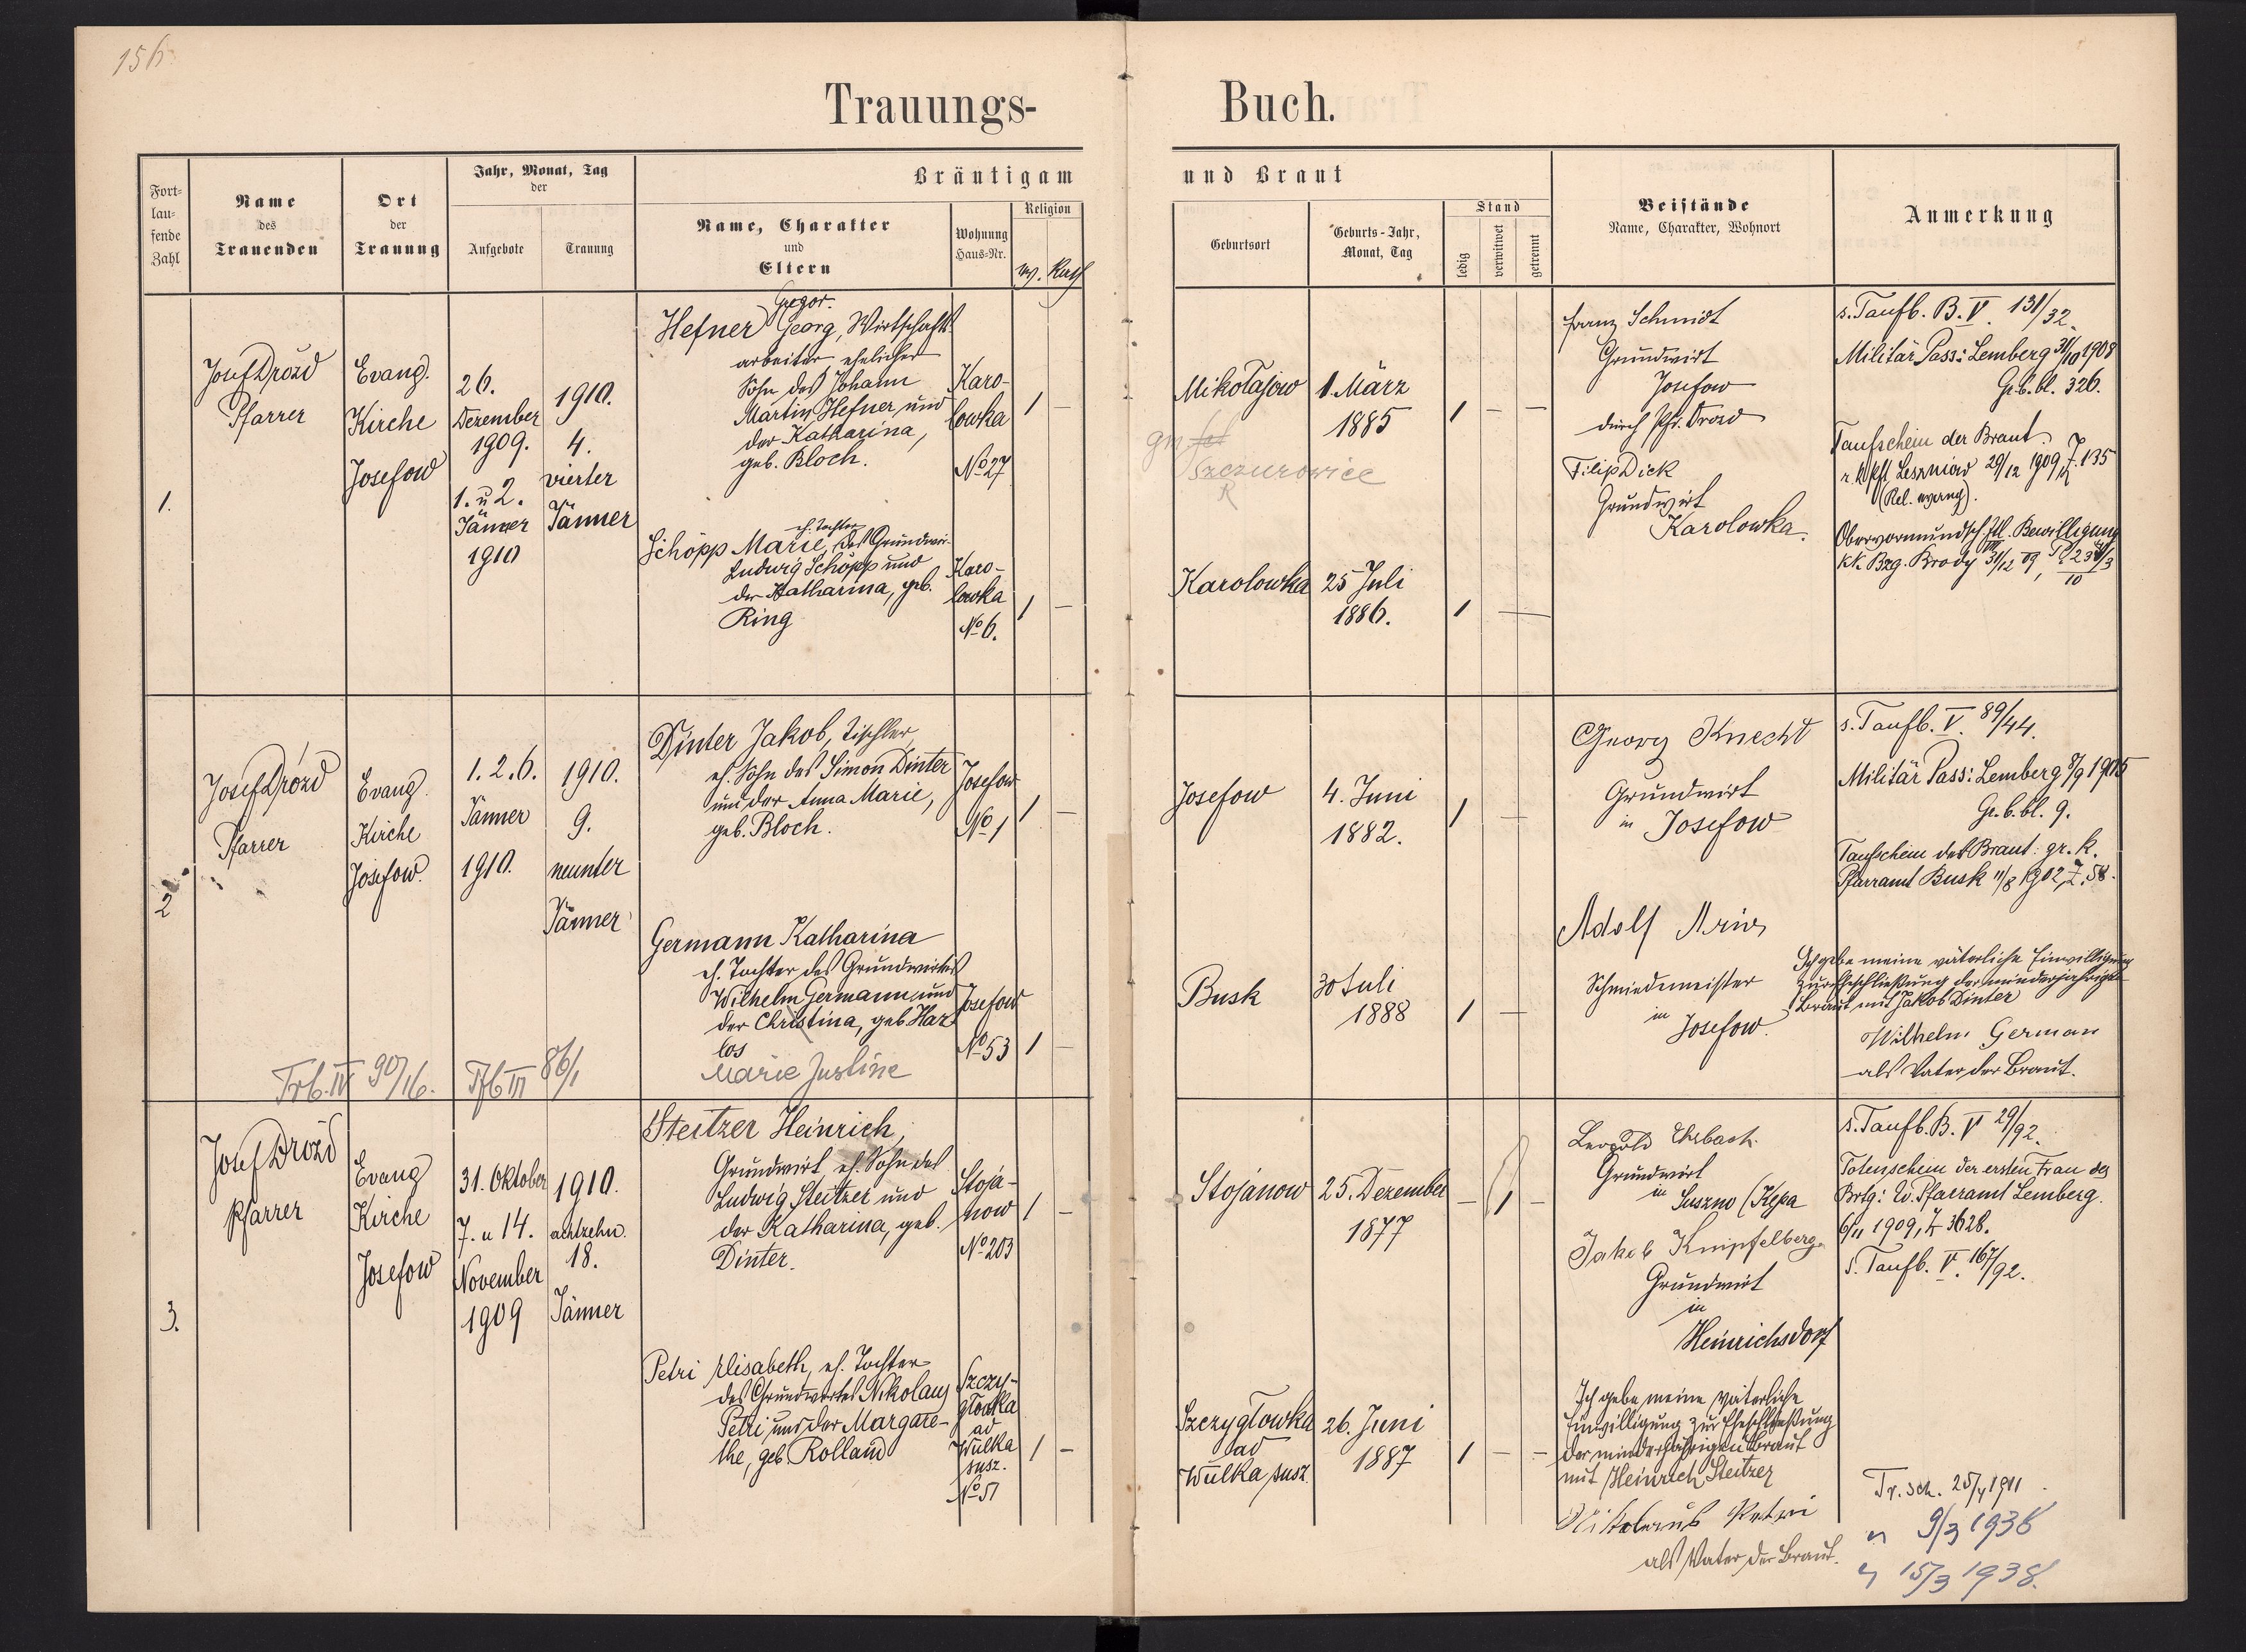 156
Trauungs-Buch.
Fort-
lau-
fende
Zahl
Name
des
Trauenden
Ort
der
Trauung
Jahr, Monat, Tag
der
Aufgebote
Trauung
Bräutigam und Braut
Name, Charakter
und
Eltern
Wohnung
Haus-Nr.
Religion
ev. Kath
Geburtsort
Geburts-Jahr,
Monat, Tag
Stand
ledig
verwitwet
getrennt
Beistände
Name, Charakter, Wohnort
Anmerkung
1.
Josef Drozd
Pfarrer
Evang.
Kirche
Josefow
26.
Dezember
1909.
1. u 2.
Jänner
1910
1910.
4.
vierter
Jänner
Gregor.
Hefner Georg, Wirtschafts
arbeiter ehelicher
Sohn des Johann
Martin Hefner und
der Katharina,
geb. Bloch.
Karo-
lowka
No 27
1 –
Mikołajow
Szczurowice
1. März
1885
1 – –
eh. Tochter
Schöpp Marie, des Grundwir-
Ludwig Schöpp und
der Katharina, geb.
Ring
Karo-
lowka
No 6.
1 –
Karolowka
25 Juli
1886.
1 –
Franz Schmidt
Grundwirt
Josefow
durch Pfr. Drozd
Filip Dick
Grundwirt
Karolowka.
s. Taufb. B. V. 131/32.
Militär Pass: Lemberg 31/10 1908
Gr. b. bl. 326.
Taufschein der Braut.
r. k. Pft. Leszniow 29/12 1909, Z. 135
(Rel. evang).
Obervormundsch. Bewilligung
kk. Bzg. Brody 31/12 09
2
Josef Drozd
Pfarrer
Evang.
Kirche
Josefow.
1. 2. 6.
Jänner
1910.
1910.
9.
neunter
Jänner
Dinter Jakob, Tischler,
eh. Sohn des Simon Dinter
und der Anna Marie,
geb. Bloch.
Josefow
No 1
1 –
Josefow
4. Juni
1882.
1 –
Germann Katharina
eh. Tochter des Grundwirtes
Wilhelm Germann und
der Christina, geb. Har
los
Marie Justine
Josefow
No 53
1 –
Busk
30 Juli
1888
1 –
Trb. IV 90/16. Tfb III 86/1
Georg Knecht
Grundwirt
in Josefow
Adolf
Schmiedmeister
in
Josefow.
s. Taufb. V. 89/44.
Militär Pass: Lemberg 8/9 1905
Gr. b. bl. 9.
Taufschein der Braut: gr. k.
Pfarramt Busk 11/8 1902, Z. 58.
Ich gebe meine väterliche Einwilligung
zur Eheschließung der minderjährigen
Braut mit Jakob Dinter
Wilhelm German
als Vater der Braut.
3.
Josef Drozd
Pfarrer
Evang
Kirche
Josefow
31. Oktober
7. u 14.
November
1909
1910.
achtzehn.
18.
Jänner
Steitzer Heinrich,
Grundwirt, eh. Sohn des
Ludwig Steitzer und
der Katharina, geb.
Dinter.
Stoja-
now
No 203
1 –
Stojanow
25. Dezember
1877
– 1 –
Petri Elisabeth, eh. Tochter
des Grundwirtes Nikolaus
Petri und der Margare-
the, geb. Rolland
Szczy-
głowka
ad
Wulka
susz.
No 51
1 –
Szczygłowka
ad
Wulka susz
26. Juni
1887
1 – –
Leopold
Grundwirt
in Suszno (Kępa
Jakob Knipfelberg.
Grundwirt
in
Heinrichsdorf
Ich gebe meine väterliche
Einwilligung zur Eheschließung
der minderjährigen Braut
mit Heinrich Steitzer
Nikolaus Petri
als Vater der Braut.
s. Taufb. B. V 29/92.
Totenschein der ersten Frau des
Brtg: Ev. Pfarramt Lemberg.
6/11 1909, Z 3628.
s. Taufb. V. 167/92.
Tr. sch. 25/4 1911
" 9/3 1936
" 15/3 1938.